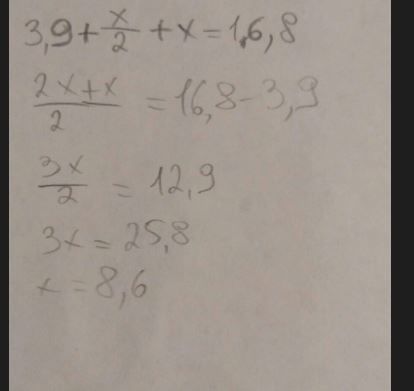 3,9+x/2+x=1,6,8
2x+x/2=16,8-3,9
3x/2=12,9
3x=25,8
x=8,6